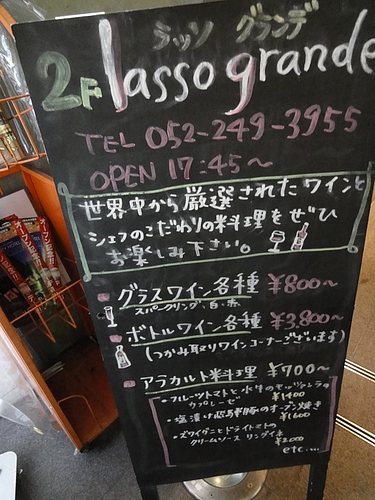 ラッソ グランデ
2F lasso grande
TEL 052-249-3955
OPEN 17:45〜
世界中から厳選されたワインと
シェフのこだわりの料理をぜひ
お楽しみ下さい。
グラスワイン各種 ¥800〜
スパークリング・白・赤
ボトルワイン各種 ¥3,800〜
(つかみ取りワインコーナーございます)
アラカルト料理 ¥700〜
・フルーツトマトと水牛のモッツァレラの
カプレーゼ ¥1400
・塩漬け豚のオーブン焼き
¥1600
・ズワイガニとドライトマトの
クリームソース リングイネ
¥2000
etc....
オープン記念